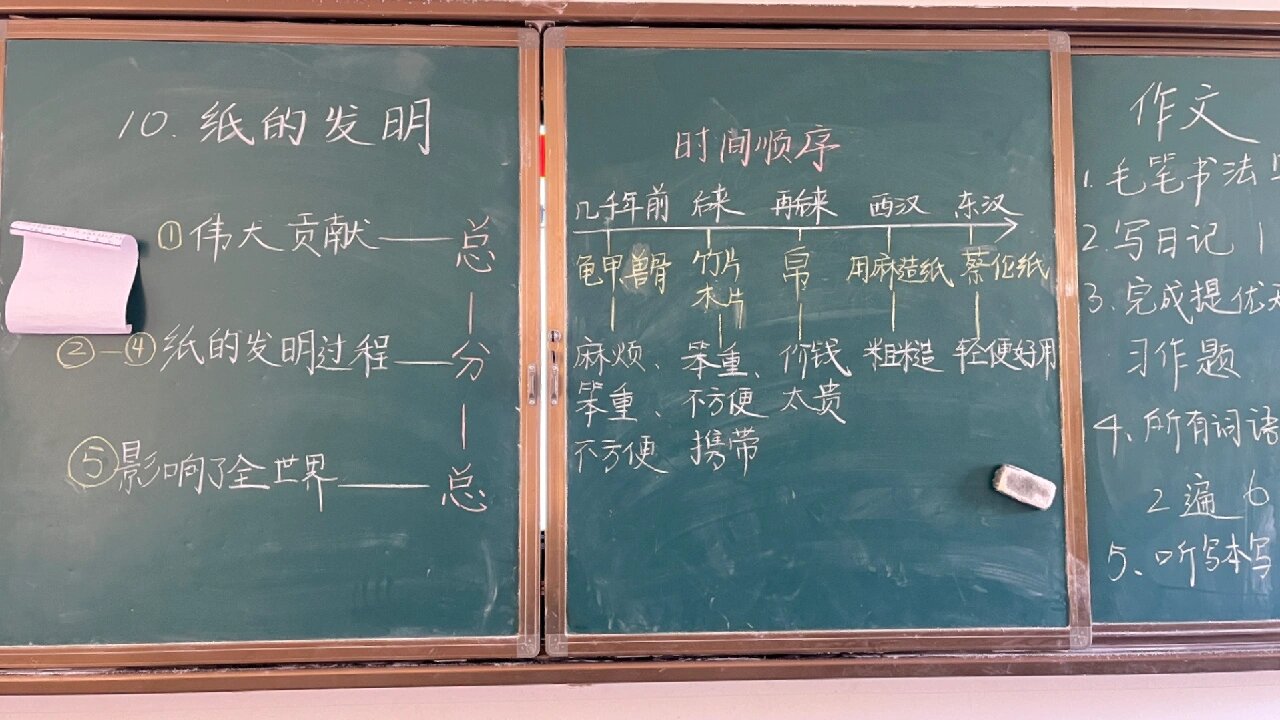 10.纸的发明
①伟大贡献——总
②—④纸的发明过程——分
⑤影响了全世界——总
时间顺序
几千年前 后来 再后来 西汉 东汉
龟甲兽骨 竹片 帛 用麻造纸 蔡伦纸
木片
麻烦、 笨重、 价钱 粗糙 轻便好用
笨重、 不方便 太贵
不方便 携带
作文
1.毛笔书法
2.写日记 1
3.完成提优
习作题
4、所有词语
2遍 6
5、听写本写